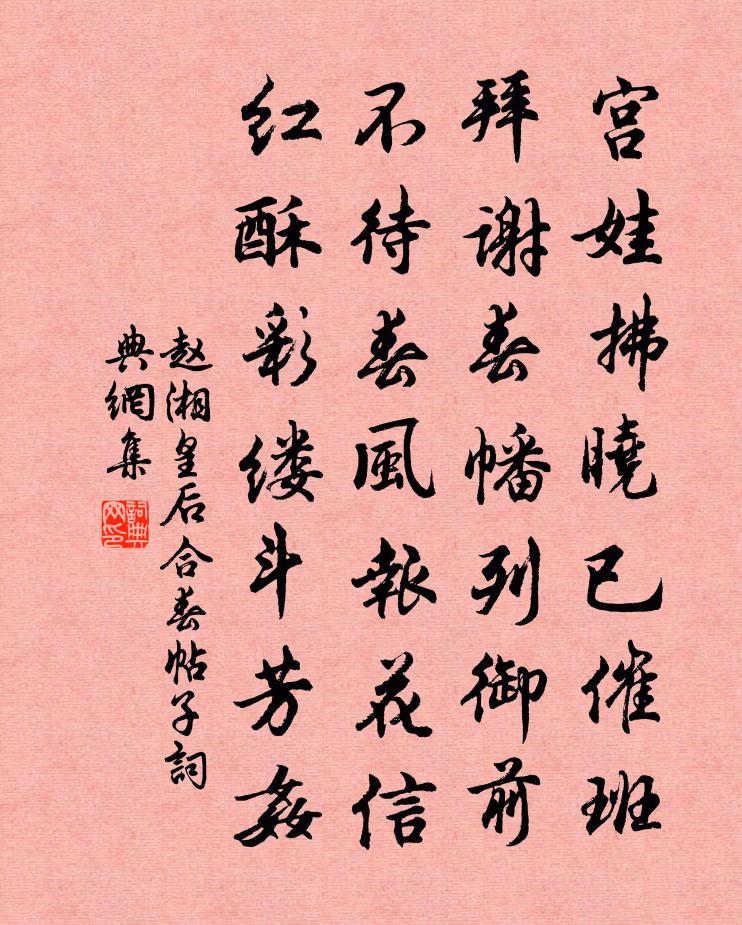 宫娃拂曉已催班
拜谢春幡列御前
不待春風報花信
红酥彩缕斗芳姦
赵湘皇后合春帖子詞
典網集
詞典網印